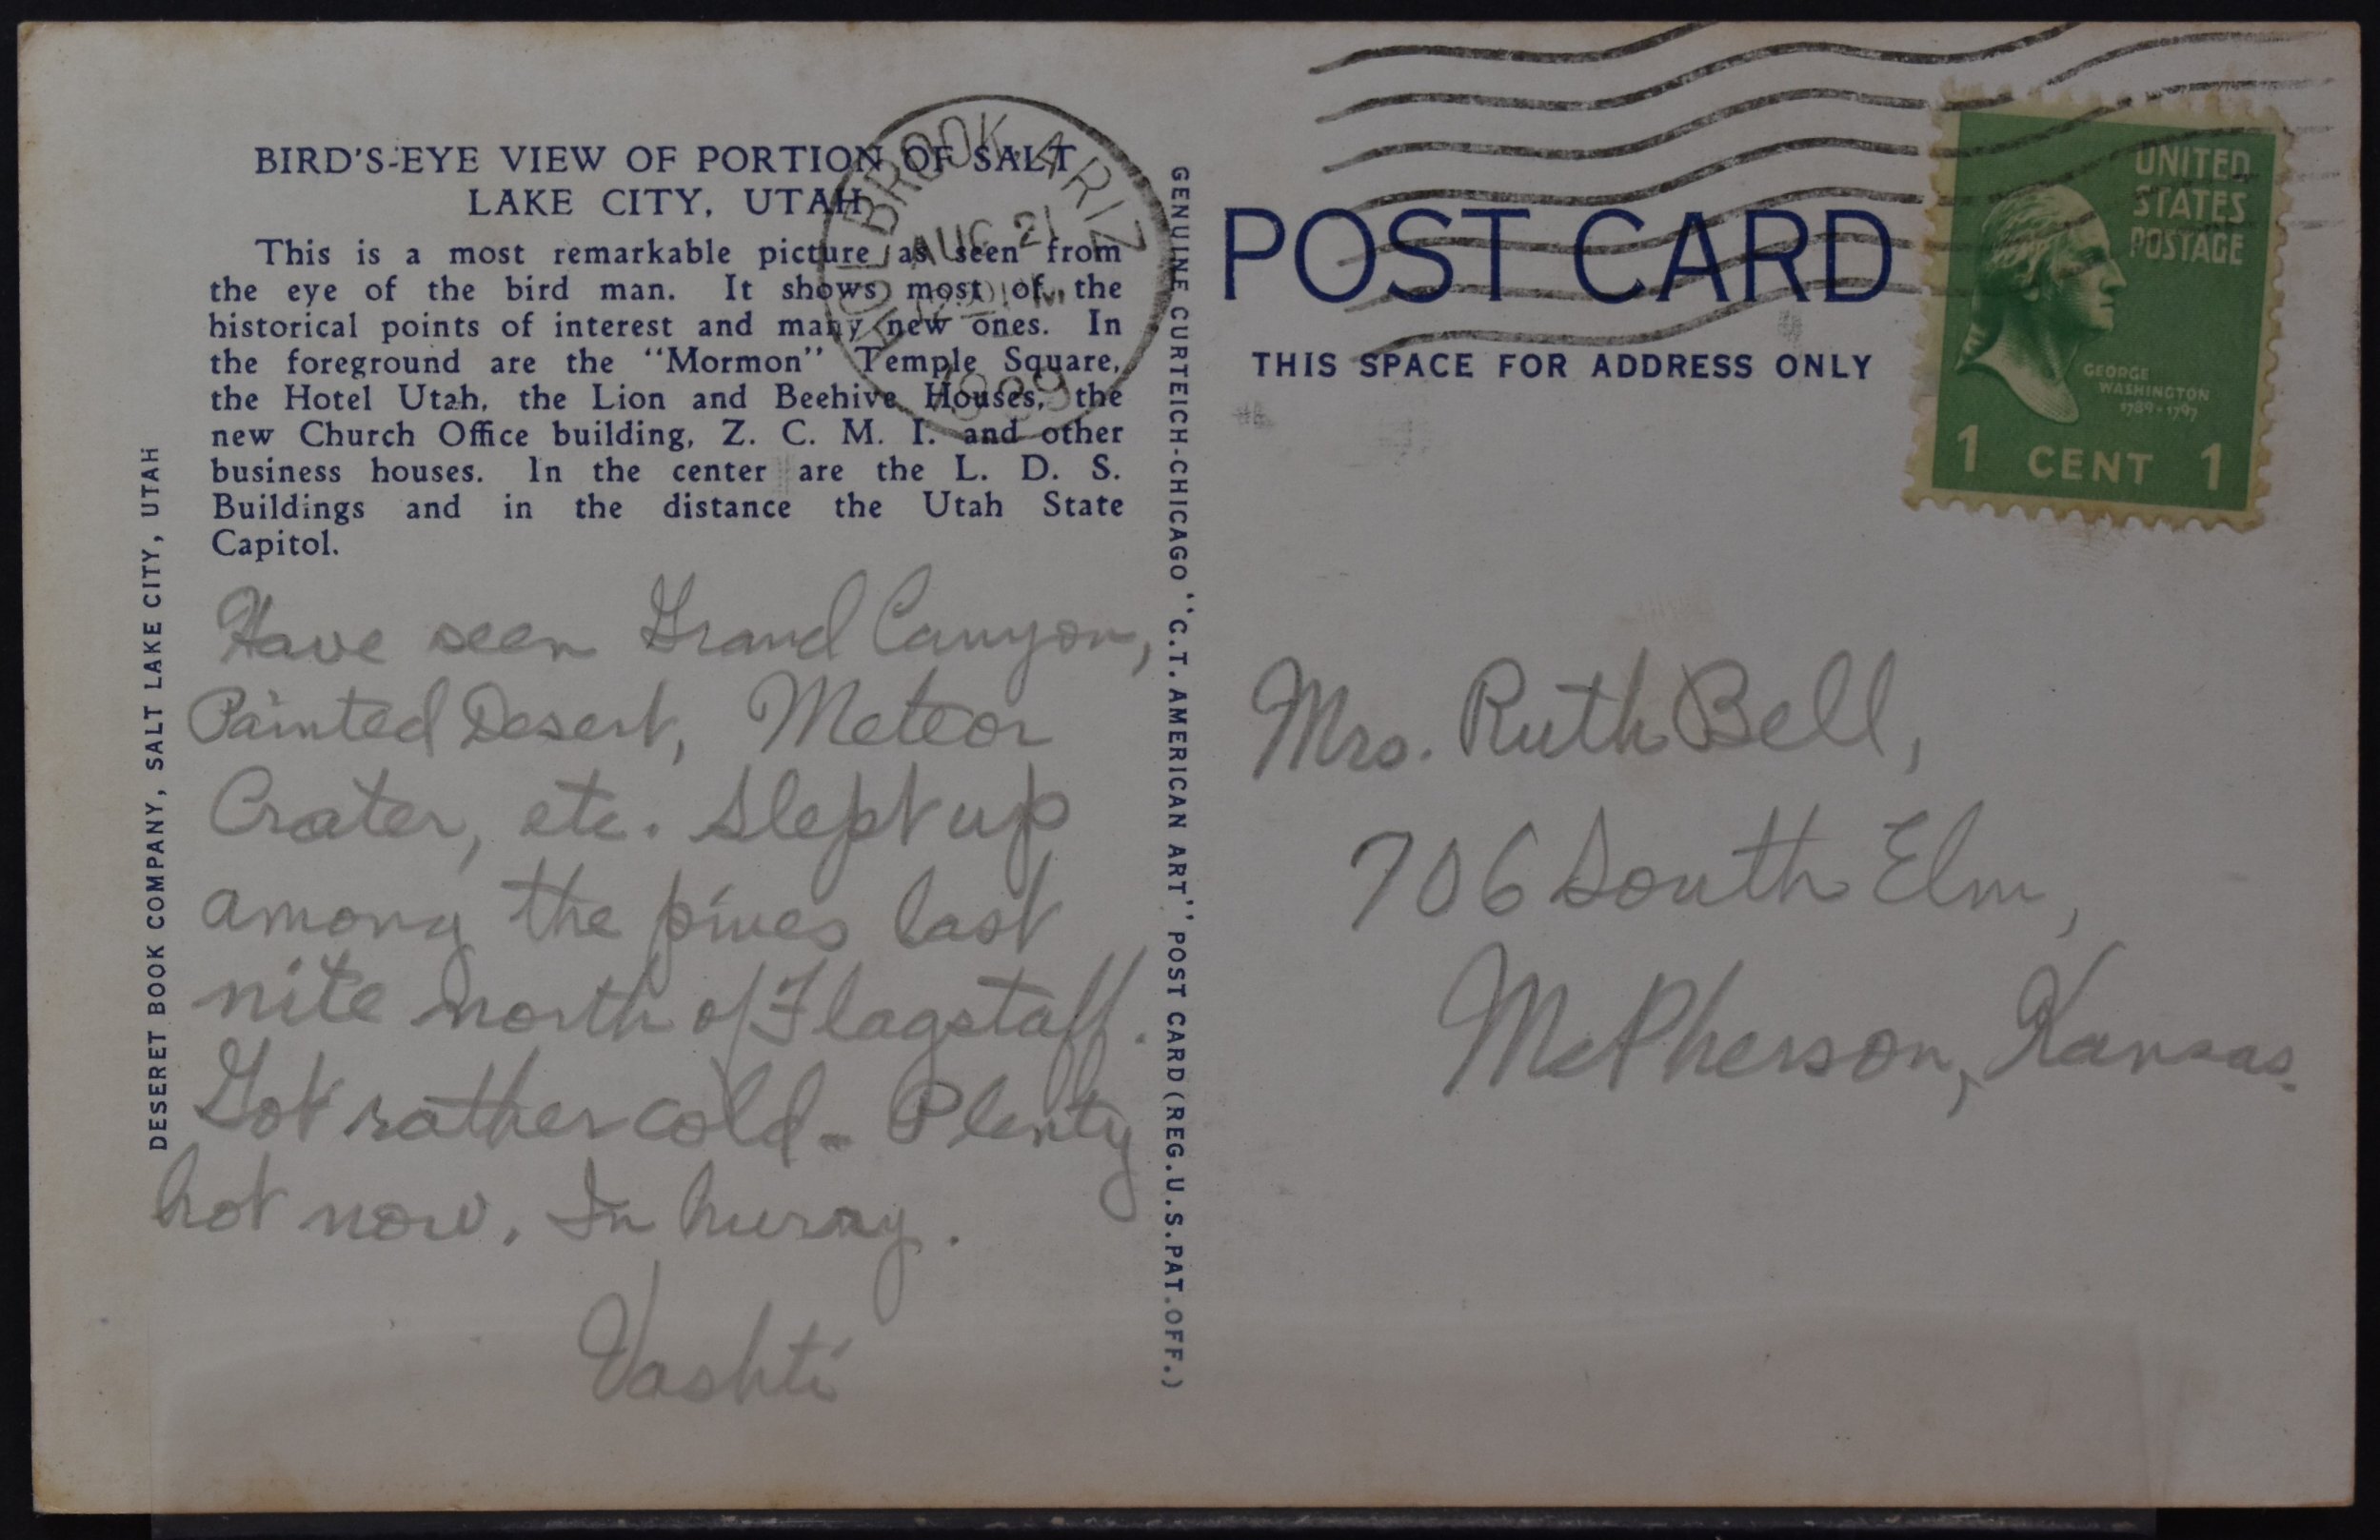 BIRD'S-EYE VIEW OF PORTION OF SALT
LAKE CITY, UTAH
This is a most remarkable picture as seen from
the eye of the bird man. It shows most of the
historical points of interest and many new ones. In
the foreground are the "Mormon" Temple Square,
the Hotel Utah, the Lion and Beehive Houses, the
new Church Office building, Z. C. M. I. and other
business houses. In the center are the L. D. S.
Buildings and in the distance the Utah State
Capitol.
HOLBROOK ARIZ
AUG 21
1939
DESERET BOOK COMPANY, SALT LAKE CITY, UTAH
Have seen Grand Canyon,
Painted Desert, Meteor
Crater, etc. Slept up
among the pines last
nite north of Flagstaff.
Got rather cold - Plenty
hot now. In hurray.
Vashti
GENUINE CURTEICH-CHICAGO "C.T. AMERICAN ART" POST CARD (REG. U.S. PAT. OFF.)
POST CARD
THIS SPACE FOR ADDRESS ONLY
UNITED
STATES
POSTAGE
GEORGE
WASHINGTON
1789-1797
1 CENT 1
Mrs. Ruth Bell,
706 South Elm,
McPherson, Kansas.